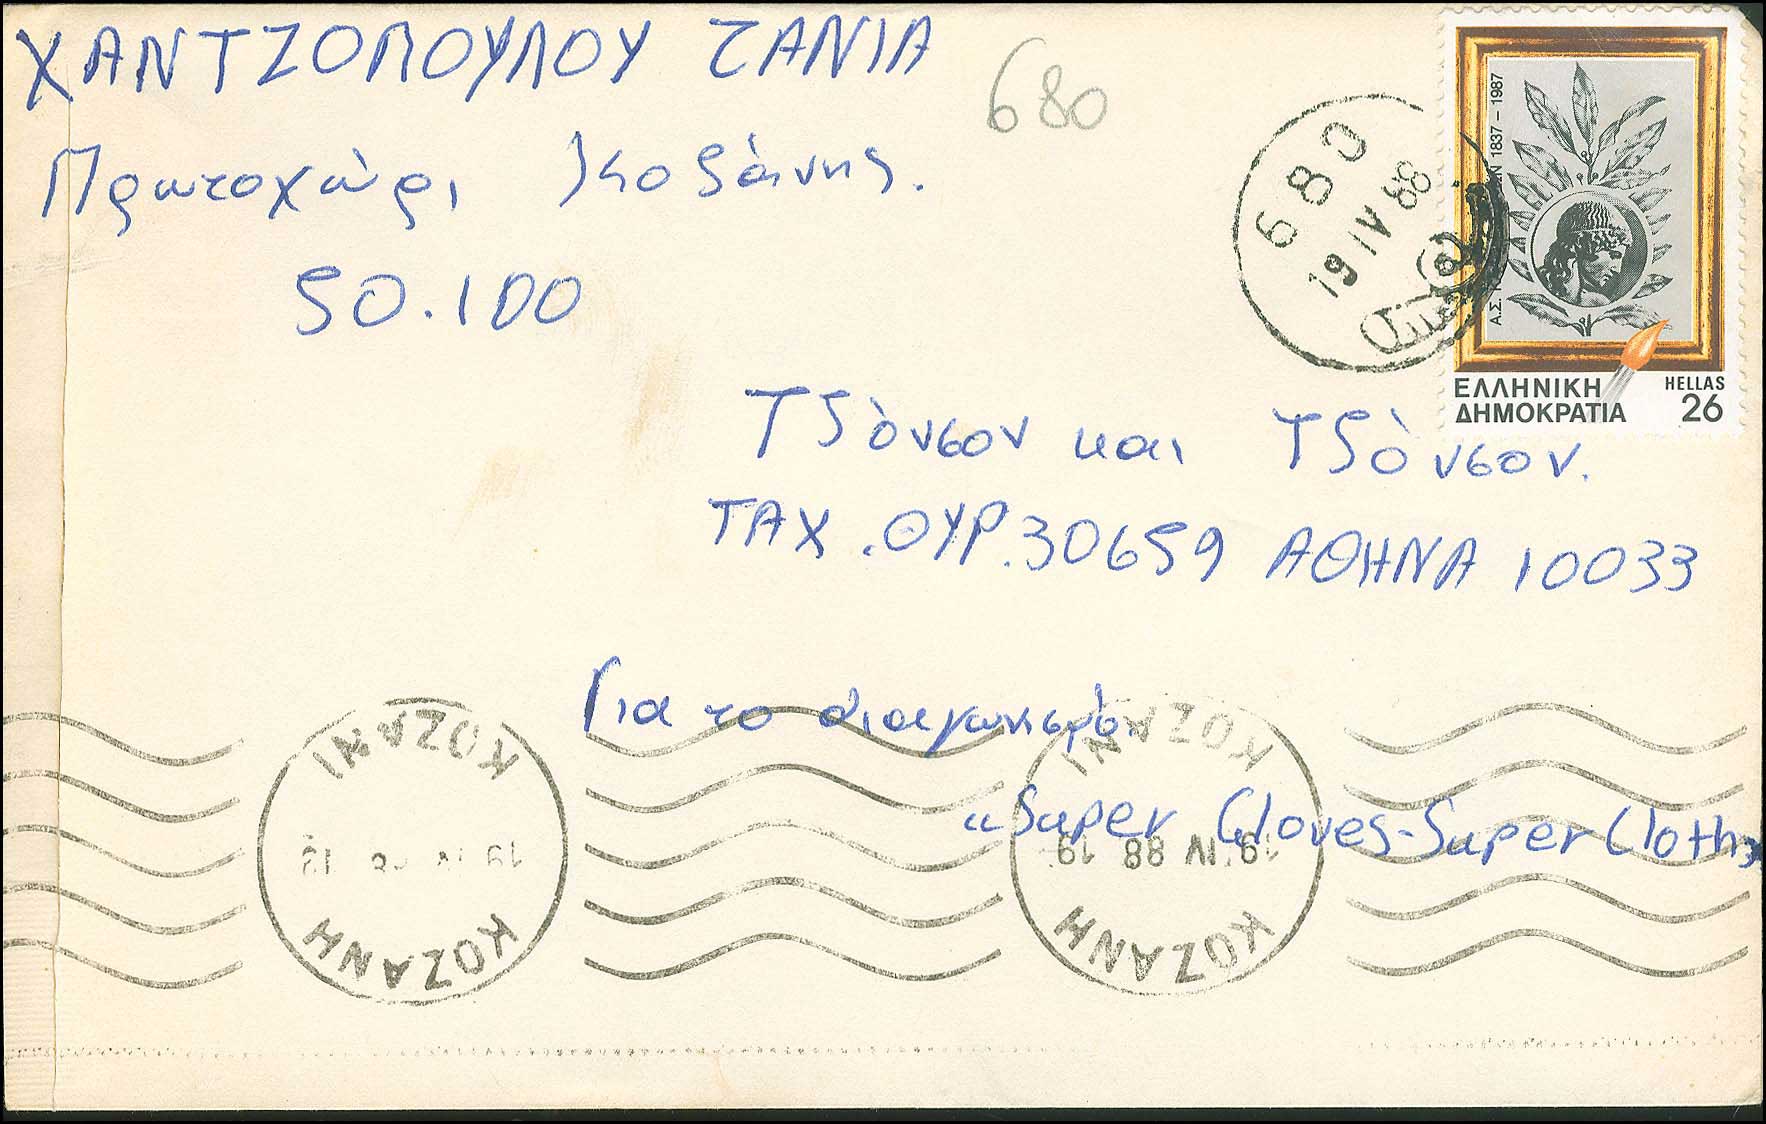 ΧΑΝΤΖΟΠΟΥΛΟΥ ΤΑΝΙΑ
Πρωτοχώρι Κοζάνης.
50.100
680
680
19 IV 88
1837 - 1987
ΕΛΛΗΝΙΚΗ
ΔΗΜΟΚΡΑΤΙΑ
HELLAS
26
Τζόνσον και Τζόνσον.
ΤΑΧ. ΘΥΡ. 30659 ΑΘΗΝΑ 10033
Για το διαγωνισμό
«Super Gloves-Super Cloth»
ΚΟΖΑΝΗ
KOZANI
ΚΟΖΑΝΗ
19.IV 88 19
KOZANI